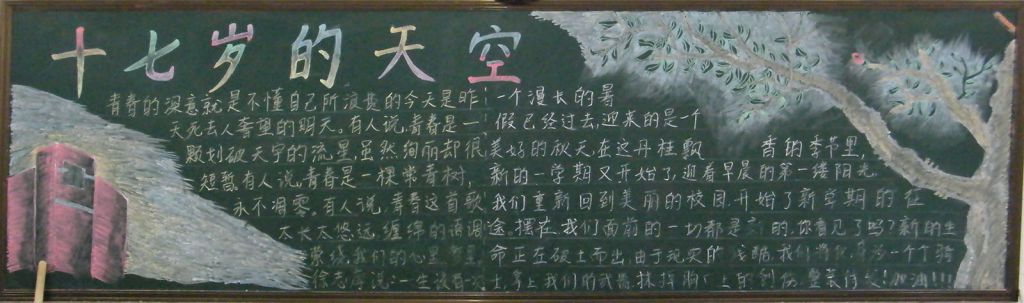 十七岁的天空
青春的深意就是不懂自己所浪费的今天是昨
天死去人奢望的明天。有人说,青春是一
颗划破天宇的流星,虽然绚丽却很
短暂,有人说,青春是一棵常青树,
永不凋零。有人说,青春这首歌
太长太悠远,缠绵的情调
萦绕我们的心里
说:一生
一个漫长的暑
假已经过去,迎来的是一个
美好的秋天在这丹桂飘香的季节里,
新的一学期又开始了,迎着早晨的第一缕阳光
我们重新回到美丽的校园开始了新学期的征
途。摆在我们面前的一切都是新的,你看见了吗?新的生
命正在破土而出,由于现实的残酷,我们将一个个骑
士,拿上我们的武器,抹掉胸口上的创伤,整装待发!加油!!!